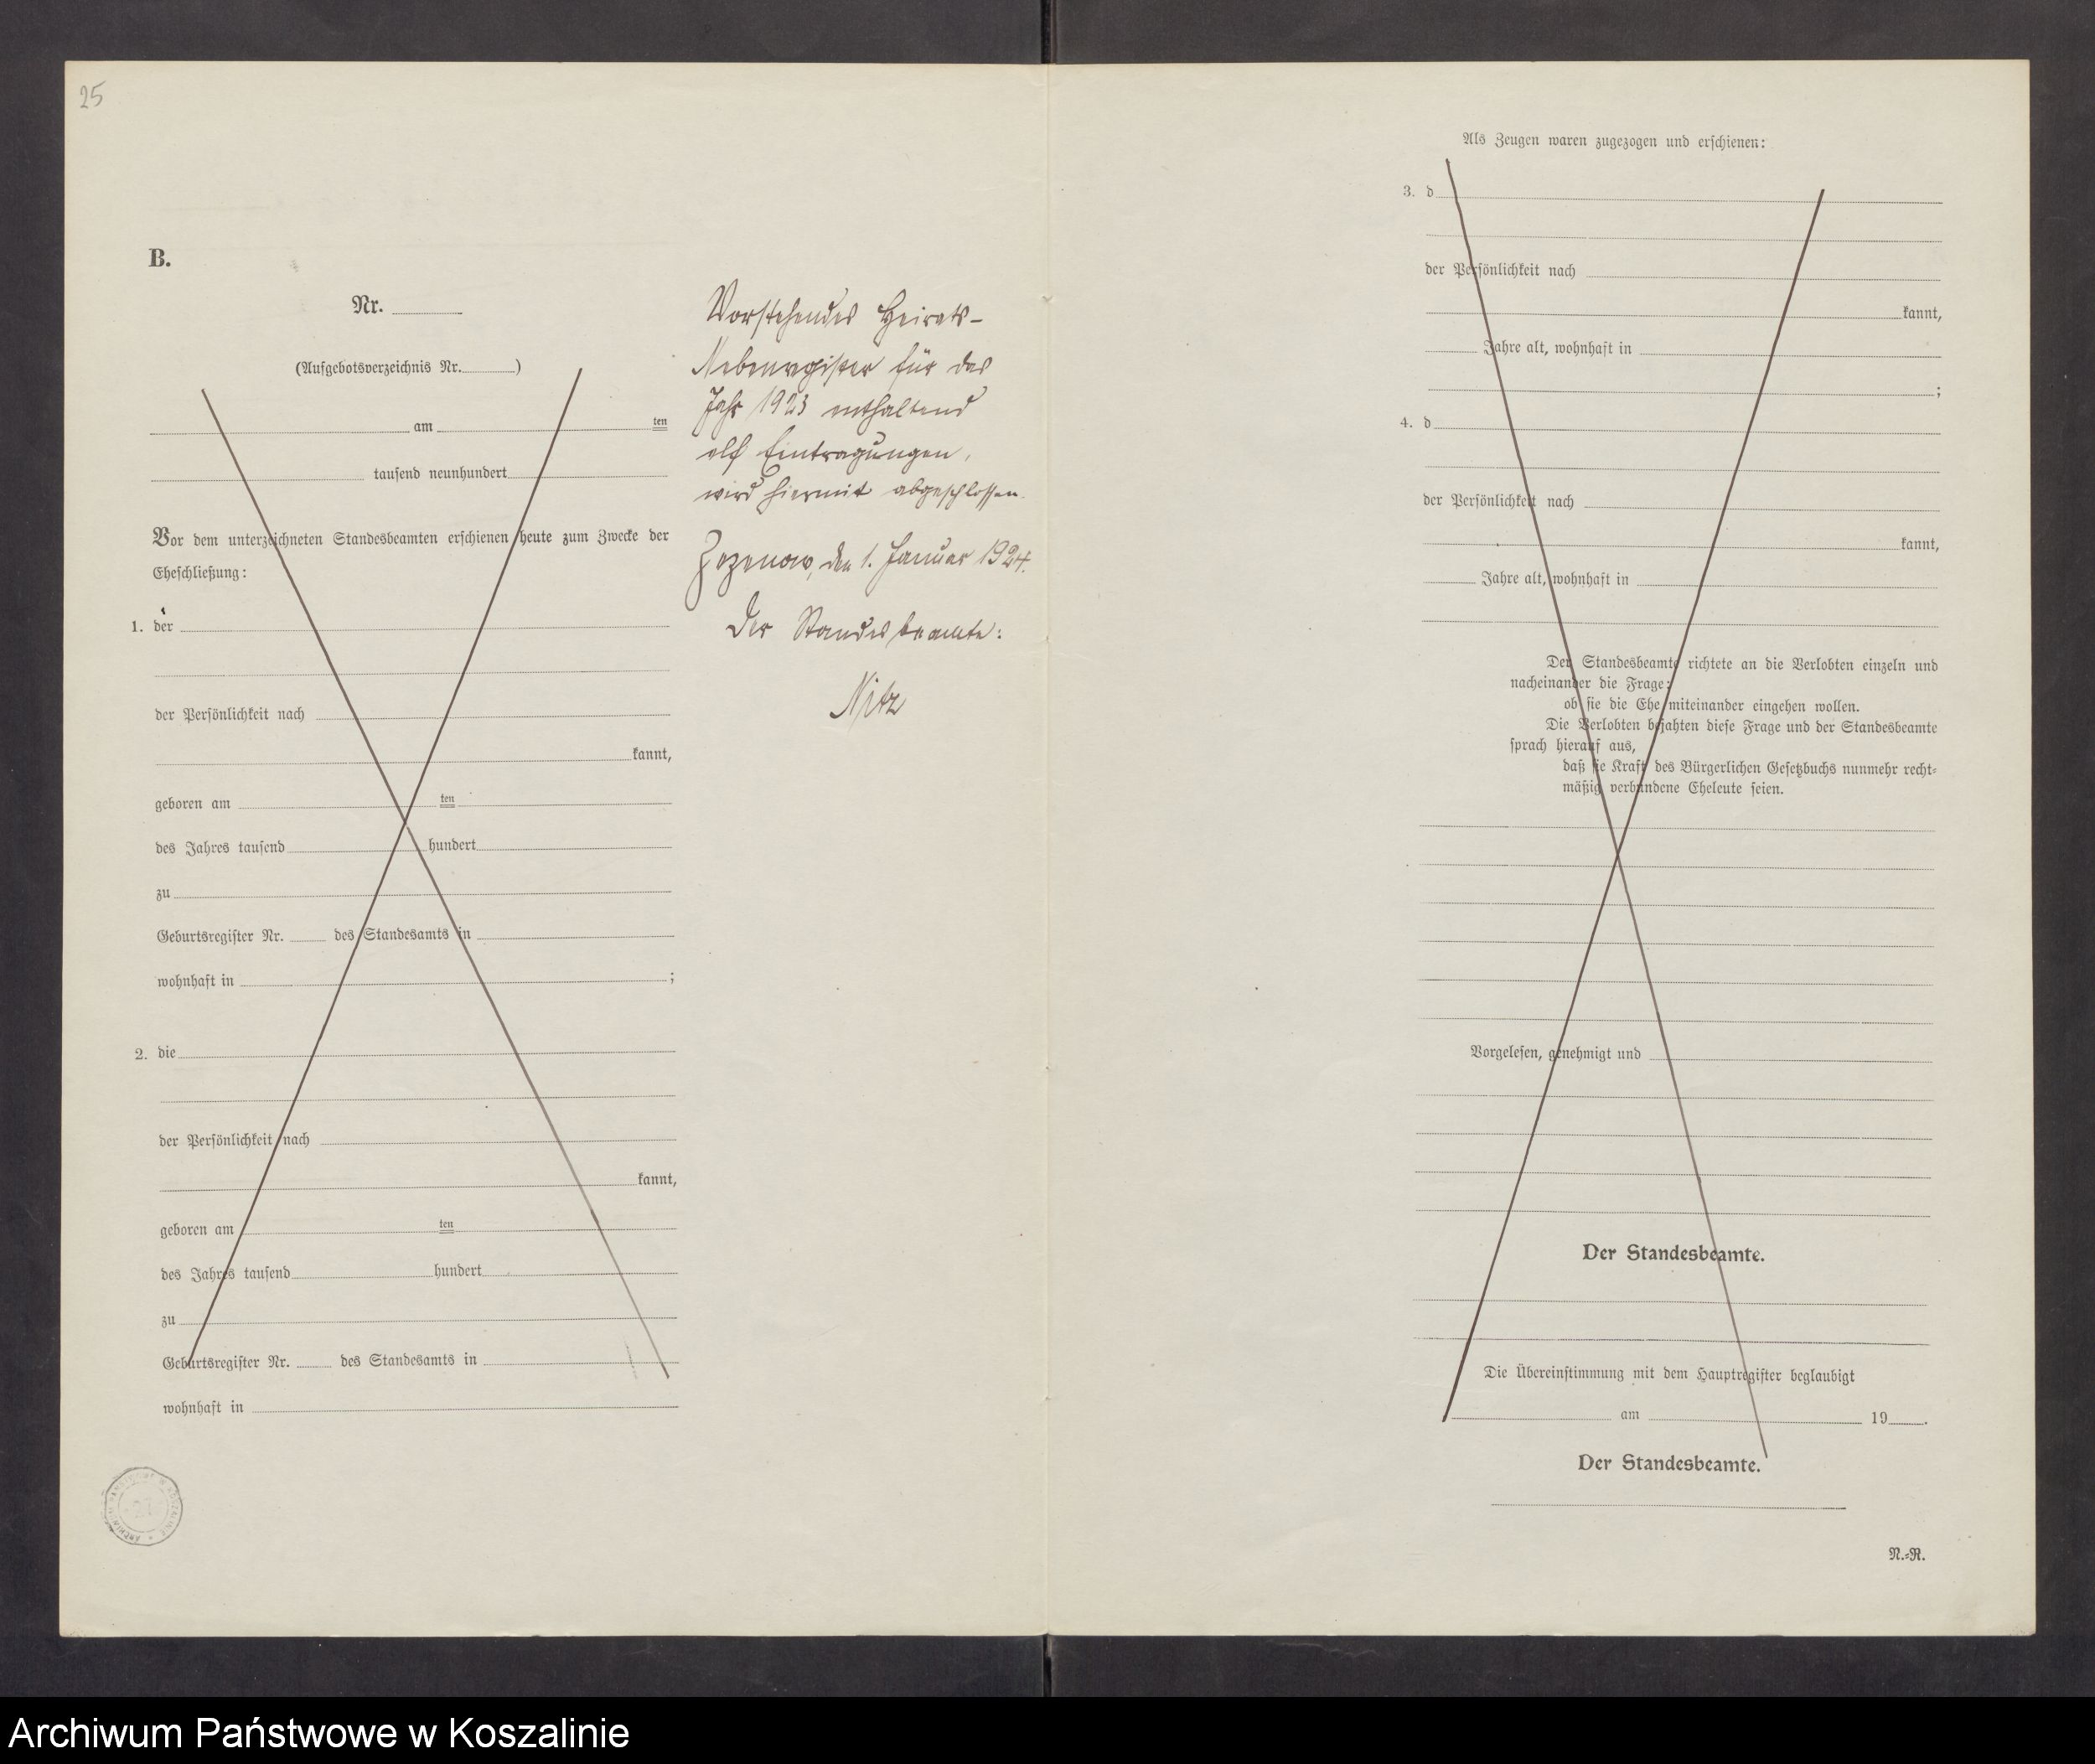 25
B.
Nr.
(Aufgebotsverzeichnis Nr. )
am ten
tausend neunhundert
Vor dem unterzeichneten Standesbeamten erschienen heute zum Zwecke der
Eheschließung:
1. der
der Persönlichkeit nach
kannt,
geboren am ten
des Jahres tausend hundert
zu
Geburtsregister Nr. des Standesamts in
wohnhaft in ;
2. die
der Persönlichkeit nach
kannt,
geboren am ten
des Jahres tausend hundert
zu
Geburtsregister Nr. des Standesamts in
wohnhaft in
Vorstehendes Heirats-
Nebenregister für das
Jahr 1923 enthaltend
elf Eintragungen,
wird hiermit abgeschlossen.
Zezenow, den 1. Januar 1924.
Der Standesbeamte:
Nitz
Als Zeugen waren zugezogen und erschienen:
3. d
der Persönlichkeit nach
kannt,
Jahre alt, wohnhaft in
;
4. d
der Persönlichkeit nach
kannt,
Jahre alt, wohnhaft in
Der Standesbeamte richtete an die Verlobten einzeln und
nacheinander die Frage:
ob sie die Ehe miteinander eingehen wollen.
Die Verlobten bejahten diese Frage und der Standesbeamte
sprach hierauf aus,
daß sie Kraft des Bürgerlichen Gesetzbuchs nunmehr recht-
mäßig verbundene Eheleute seien.
Vorgelesen, genehmigt und
Der Standesbeamte.
Die Übereinstimmung mit dem Hauptregister beglaubigt
am 19 .
Der Standesbeamte.
N.-R.
Archiwum Państwowe w Koszalinie